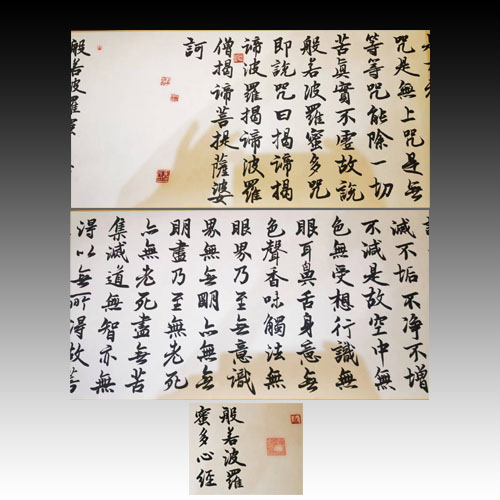 咒是無上咒是無
等等咒能除一切
苦眞實不虛故說
般若波羅蜜多咒
即說咒曰揭諦揭
諦波羅揭諦波羅
僧揭諦菩提薩婆
訶
般若波羅蜜
滅不垢不净不增
不減是故空中無
色無受想行識無
眼耳鼻舌身意無
色聲香味觸法無
眼界乃至無意識
界無無明亦無無
明盡乃至無老死
亦無老死盡無苦
集滅道無智亦無
得以無所得故菩
般若波羅
蜜多心經